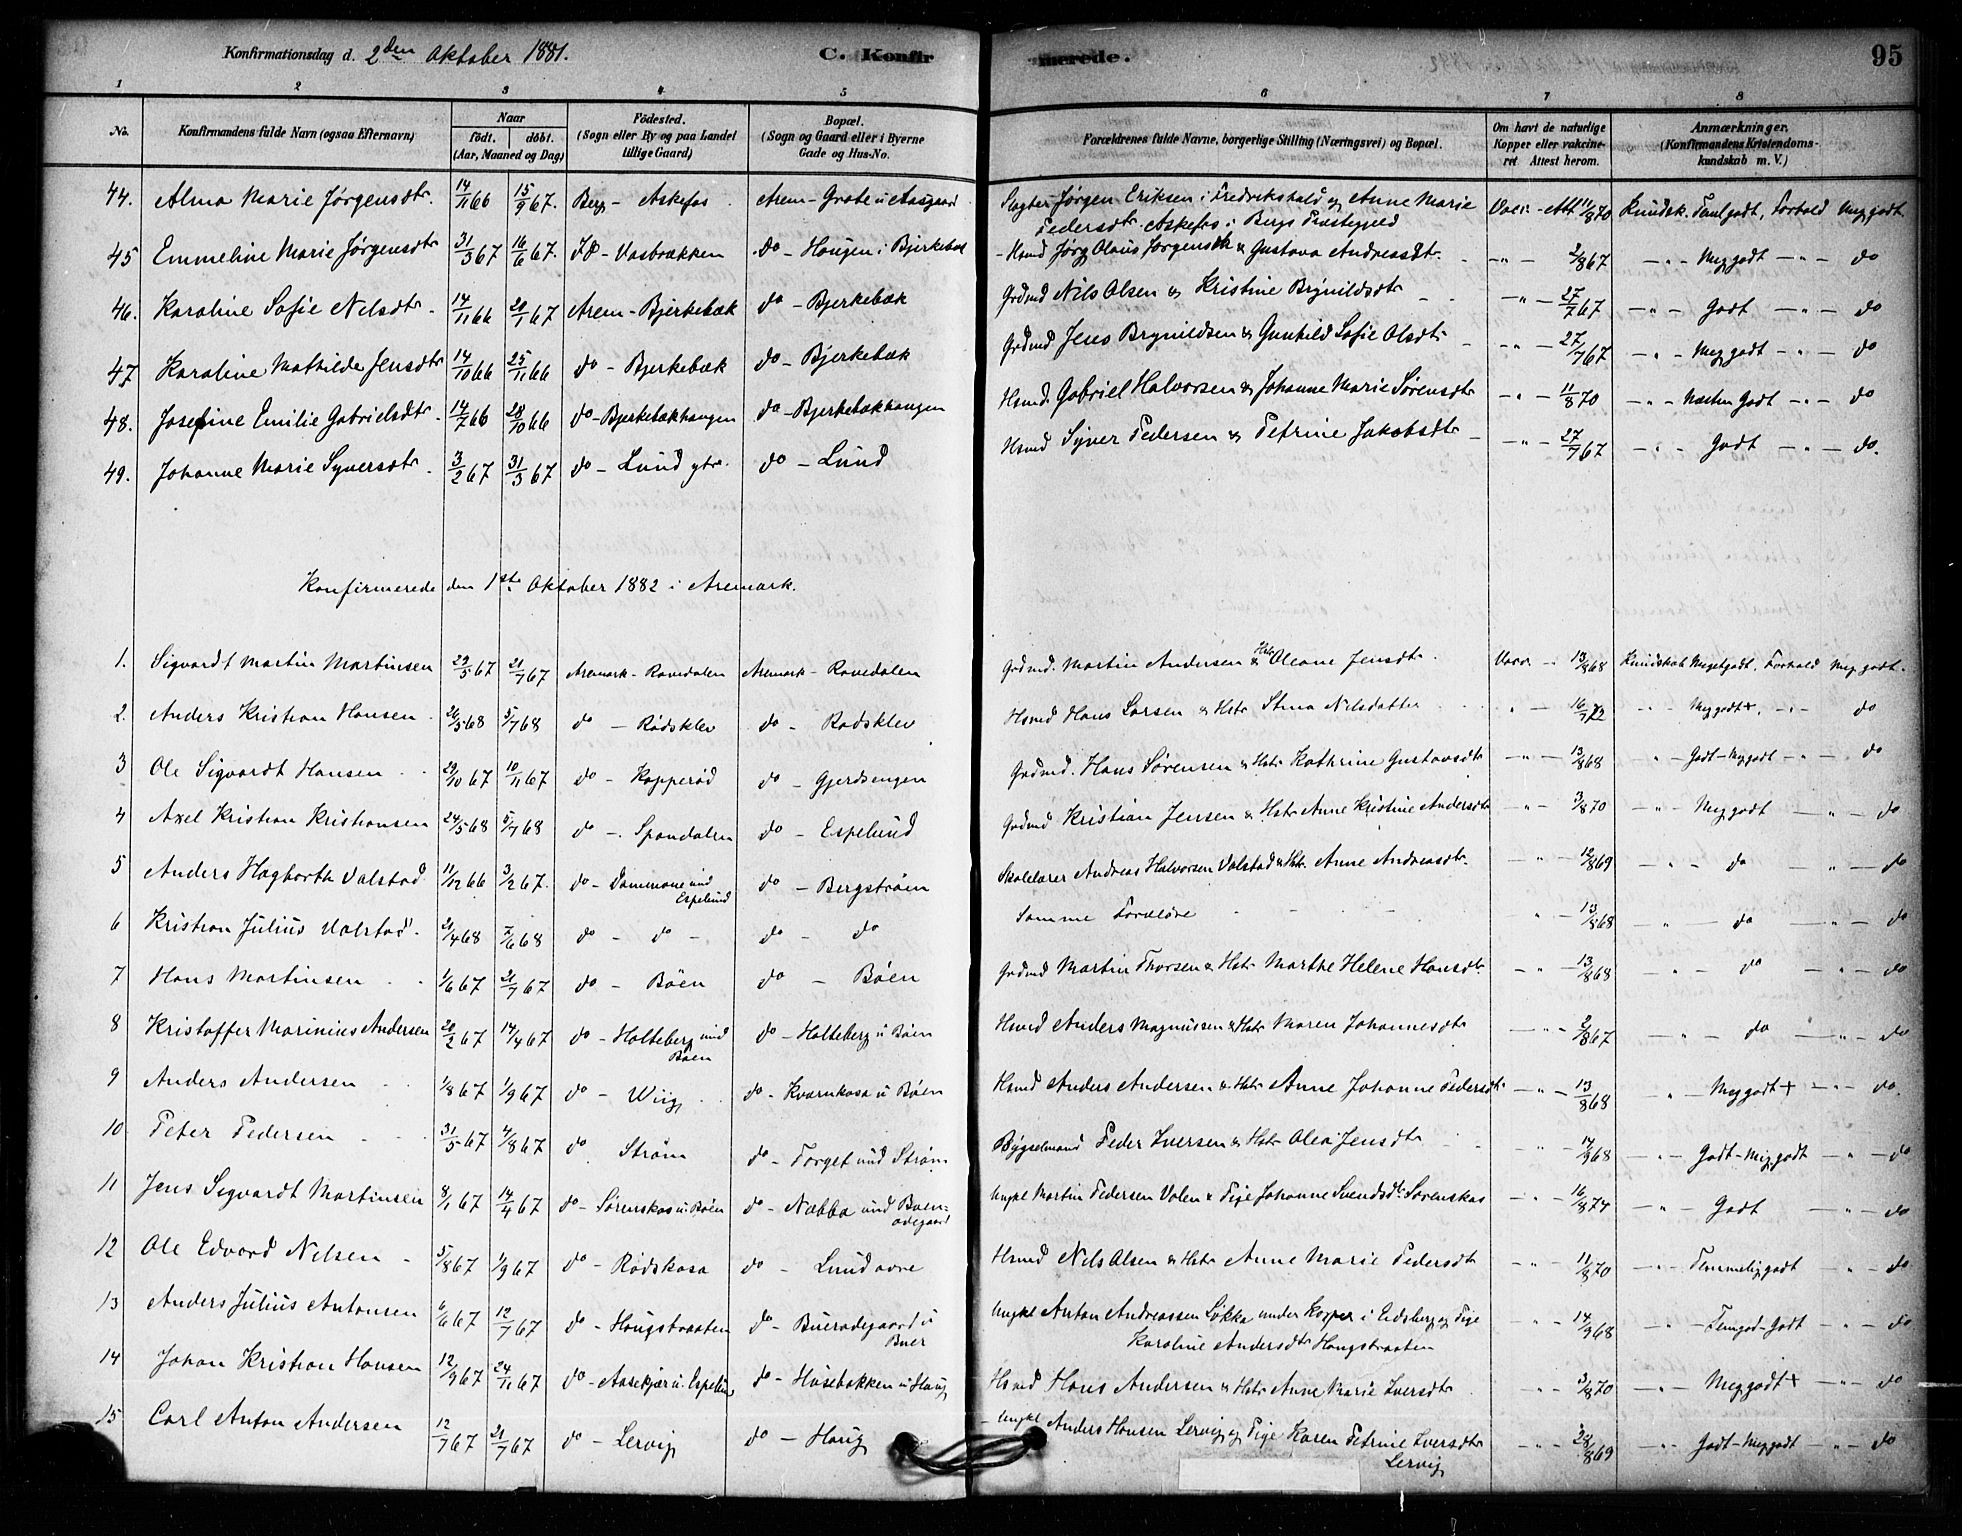 Konfirmationsdag d. 2den Oktober 1881.
C. Konfirmerede.
95
1 2 3 4 5 6 7 8
No.
Konfirmandens fulde Navn (ogsaa Efternavn)
Naar
födt. döbt.
(Aar, Maaned og Dag)
Födested.
(Sogn eller By og paa Landet
tillige Gaard)
Bopæl.
(Sogn og Gaard eller i Byerne
Gade og Hus-No.
Forældrenes fulde Navne, borgerlige Stilling (Næringsvei) og Bopæl.
Om havt de naturlige
Kopper eller vakcine-
ret Attest herom.
Anmærkninger.
(Konfirmandens Kristendoms-
kundskab m. V.)
44. Alma Marie Jørgensdtr. 14/11 66 15/9 67. Berg - Askefos Arem - Grote u Aasgaard Slagter Jørgen Eriksen i Fredrikshald og Anne Marie Vacc. - Att 11/8 70 Kundsk. Teml godt, Forhold Meg godt.
Pedersdtr Askefos i Bergs Præstegjeld
45 Emmeline Marie Jørgensdtr 31/3 67 16/6 67. - Vasbrækken do - Haugen i Bjerkebæk Hsmd Jørg Olaus Jørgensen & Gustava Andreasdtr. - " - 2/8 67 - " - Meg godt - " - do
46. Karoline Sofie Nilsdtr. 14/11 66 20/1 67 Arem - Bjerkebæk do - Bjerkebæk Grdmd Nils Olsen & Kristine Brynildsdtr - " - 27/7 67 - " - Godt - " - do
47 Karoline Mathilde Jensdtr 14/10 66 25/11 66 do - Bjerkebæk do - Bjerkebæk Grdmd Jens Brynildsen & Gunhild Sofie Olsdtr - " - 27/7 67 - " - Meg godt - " - do
48. Josefine Emilie Gabrielsdtr. 14/7 66 28/10 66 do - Bjerkebækhaugen do - Bjerkebækhaugen Hsmd. Gabriel Halvorsen & Johanne Marie Sørensdtr - " - 11/8 70 - " - Næsten Godt - " - do
49. Johanne Marie Syversdtr. 3/2 67 31/3 67 do - Lund ytr. do - Lund Hsmd Syver Pedersen & Petrine Jakobsdtr - " - 27/7 67 - " - Godt - " - do.
Konfirmerede den 1ste Oktober 1882 i Aremark.
1. Sigvardt Martin Martinsen 29/5 67 21/7 67 Aremark - Ravedalen Aremark - Ravedalen Grdmd. Martin Andersen & Hstr Oleane Jensdtr. Vacc. - 13/8 68 Kundskab Meget godt, Forhold Meg godt.
2. Anders Kristian Hansen 26/5 68 5/7 68 do - Rødsklev do - Rødsklev Hsmd Hans Larsen & Hstr Stina Nilsdatter " - 16/7 72 - " - Meg godt +. - " - do
3 Ole Sigvardt Hansen 29/10 67 10/11 67 do - Kopperød do - Gjerdsengen Grdmd. Hans Sørensen & Hstr Kathrine Gustavsdtr - " - 13/8 68 - " - Godt - Meg godt - " - do
4 Axel Kristian Kristiansen 24/5 68 5/7 68 do - Spondalen do - Espelund Grdmd Kristian Jensen & Hstr Anne Kristine Andersdtr - " - 3/8 70 - " - Meg godt - " - do
5 Anders Hagbarth Valstad 11/12 66 3/2 67. do - Dammane und do - Bergstrøm Skolelærer Andreas Halvorsen Valstad & Hstr. Anne Andreasdtr. - " - 12/8 69 - " - do - " - do
Espelund
6 Kristian Julius Valstad. 20/4 68 7/6 68 do - do - do - do Samme Forældre " - 13/8 68 - " - do - " - do
7 Hans Martinsen 1/6 67 21/7 67 do - Böen do - Böen Grdmd Martin Thorsen & Hstr Marthe Helene Hansdtr. - " - 13/8 68 - " - do - " - do
8 Kristoffer Marinius Andersen 20/2 67 14/4 67 do - Holteberg und do - Holteberg u Böen Hsmd Anders Magnussen & Hstr Maren Johannesdtr - " - 2/8 67 - " - do - " - do
Böen
9 Anders Andersen 1/8 67 1/9 67 do - Wiig do - Kvernkasa u Böen Hsmd Anders Andersen & Hstr Anne Johanne Pedersdtr - " - 13/8 68 - " - Meg godt + - " - do.
10. Peter Pedersen 31/5 67 4/8 67 do Strøm do - Torget und Strøm Bygselmand Peder Iversen & Hstr Olea Jensdtr - " - 14/9 68 - " - Godt - Meg godt - " - do
11 Jens Sigvardt Martinsen 8/1 67 14/4 67 do - Sørenskas u. Böen do - Nabba und Boen- Ungkl Martin Pedersen Volen & Pige Johanne Svendsdtr Sørenskas - " - 16/8 74 - " - Godt - " - do
ødegaard
12 Ole Edvard Nilsen 5/8 67 1/9 67 do - Rødskasa do - Lund øvre Hsmd Nils Olsen & Hstr Anne Marie Pedersdtr - " - 11/8 70 - " - Temmelig godt - " - do
13 Anders Julius Antonsen 6/6 67 12/7 67 do - Haugstraaten do - Buerødegaard u Ungkl Anton Andreassen Løkka under Kasper i Eidsberg og Pige - " - 14/9 68 - " - Temgod - Godt - " - do
Buer Karoline Andersdtr Haugstraaten
14 Johan Kristian Hansen 12/9 67 24/11 67 do - Aasekjær u. Espelund do - Husebakken u Haug Hsmd Hans Andersen & Hstr Anne Marie Iversdtr - " - 3/8 70 - " - Meg godt + - " - do
15 Carl Anton Andersen 12/7 67 21/7 67 do - Lervig do - Haug Ungkl Anders Hansen Lervig og Pige Karen Petrine Iversdtr - " - 28/8 69 - " - Godt - Meg godt - " - do
Lervig